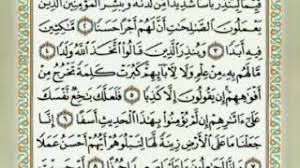 قَيِّمًا لِّيُنذِرَ بَأْسًا شَدِيدًا مِّن لَّدُنْهُ وَيُبَشِّرَ ٱلْمُؤْمِنِينَ ٱلَّذِينَ
يَعْمَلُونَ ٱلصَّٰلِحَٰتِ أَنَّ لَهُمْ أَجْرًا حَسَنًا ٢ مَّٰكِثِينَ
فِيهِ أَبَدًا ٣ وَيُنذِرَ ٱلَّذِينَ قَالُوا۟ ٱتَّخَذَ ٱللَّهُ وَلَدًا ٤
مَّا لَهُم بِهِۦ مِنْ عِلْمٍ وَلَا لِءَابَآئِهِمْ كَبُرَتْ كَلِمَةً تَخْرُجُ مِنْ
أَفْوَٰهِهِمْ إِن يَقُولُونَ إِلَّا كَذِبًا ٥ فَلَعَلَّكَ بَٰخِعٌ نَّفْسَكَ
عَلَىٰٓ ءَاثَٰرِهِمْ إِن لَّمْ يُؤْمِنُوا۟ بِهَٰذَا ٱلْحَدِيثِ أَسَفًا ٦ إِنَّا
جَعَلْنَا مَا عَلَى ٱلْأَرْضِ زِينَةً لَّهَا لِنَبْلُوَهُمْ أَيُّهُمْ أَحْسَنُ عَمَلًا